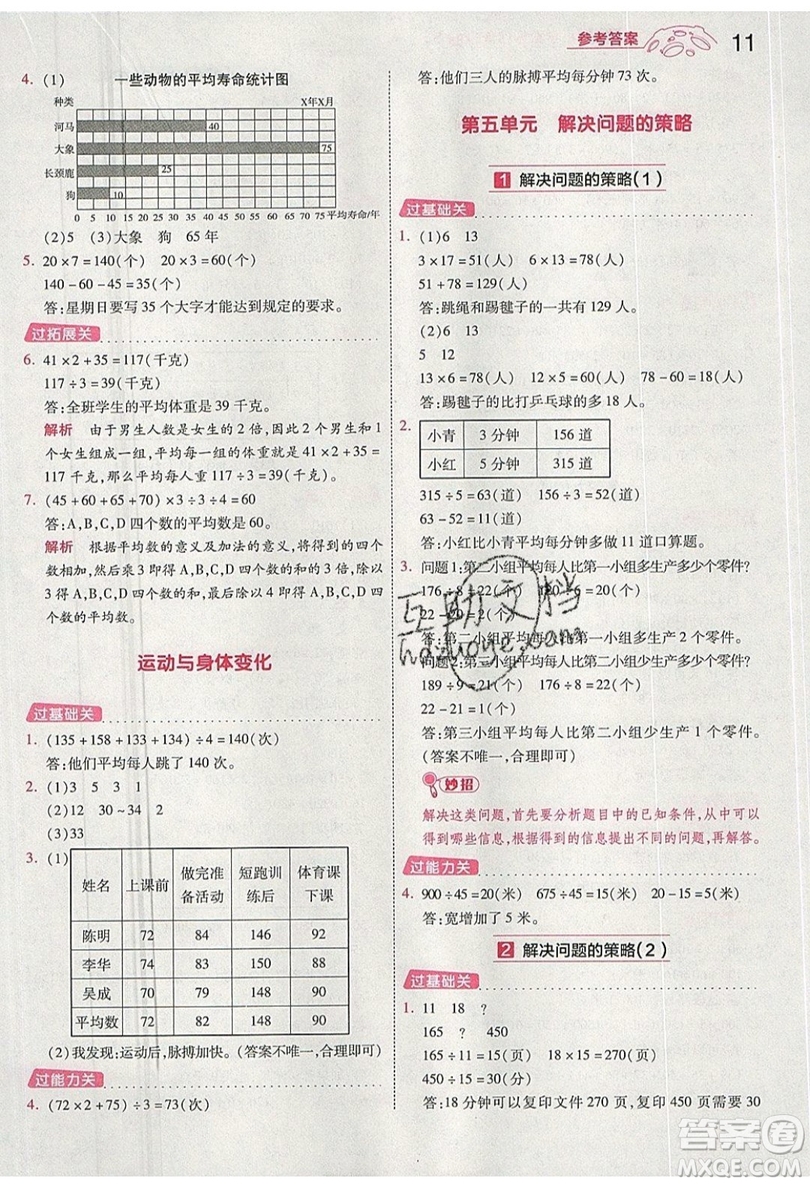 参考答案 11
4. (1) 一些动物的平均寿命统计图
种类 X年X月
河马 40
大象 75
长颈鹿 25
狗 10
0 5 10 15 20 25 30 35 40 45 50 55 60 65 70 75 平均寿命/年
(2)5 (3)大象 狗 65年
5. 20×7=140(个) 20×3=60(个)
140-60-45=35(个)
答:星期日要写35个大字才能达到规定的要求。
过拓展关
6. 41×2+35=117(千克)
117÷3=39(千克)
答:全班学生的平均体重是39千克。
解析 由于男生人数是女生的2倍,因此2个男生和1
个女生组成一组,平均每一组的体重就是41×2+35=
117千克,那么平均体重是117÷3=39(千克)。
7. (45+60+75)×3÷3÷3=60
答:A,B,C,D四个数的平均数是60。
解析 根据平均数的意义及加法的意义,将得到的三个
数相加,然后乘3得A,B,C,D四个数的和的3倍,除以
3得A,B,C,D四个数的和,最后除以4得A,B,C,D四
个数的平均数。
运动与身体变化
过基础关
1. (135+158+133+134)÷4=140(次)
答:他们平均每人跳了140次。
2. (1)3 5 3 1
(2)12 30~34 2
(3)33
3. (1)
姓名 上课前 做完准备活动 短跑训练后 体育课下课
陈明 72 84 146 92
李华 74 80 150 88
吴成 70 82 148 90
平均数 72 82 148 90
(2)我发现:运动后,脉搏加快。(答案不唯一,合理即可)
过能力关
4. (72×2+75)÷3=73(次)
答:他们三人的脉搏平均每分钟73次。
第五单元 解决问题的策略
1 解决问题的策略(1)
过基础关
1. (1)6 13
3×17=51(人) 6×13=78(人)
51+78=129(人)
答:跳绳和踢毽子的一共有129人。
(2)6 13
5 12
13×6=78(人) 12×5=60(人) 78-60=18(人)
答:踢毽子的比打乒乓球的多18人。
2.
小青 3分钟 156道
小红 5分钟 315道
315÷5=63(道) 156÷3=52(道)
63-52=11(道)
答:小红比小青平均每分钟多做11道口算题。
3. 问题1:第二小组平均每人比第一小组多生产多少个零件?
176÷8=22(个) 140÷7=20(个)
22-20=2(个)
答:第二小组平均每人比第一小组多生产2个零件。
问题2:第三小组平均每人比第二小组少生产多少个零件?
189÷9=21(个) 176÷8=22(个)
22-21=1(个)
答:第三小组平均每人比第二小组少生产1个零件。
(答案不唯一,合理即可)
妙招
解决这类问题,首先要分析题目中的已知条件,从中可以
得到哪些信息,根据得到的信息提出不同的问题,再解答。
过能力关
4. 900÷45=20(米) 675÷45=15(米) 20-15=5(米)
答:宽增加了5米。
2 解决问题的策略(2)
过基础关
1. 11 18 ?
165 ? 450
165÷11=15(页) 18×15=270(页)
450÷15=30(分)
答:18分钟可以复印文件270页,复印450页需要30
互助文档
hdzuoye.com
答案圈
MXQE.COM